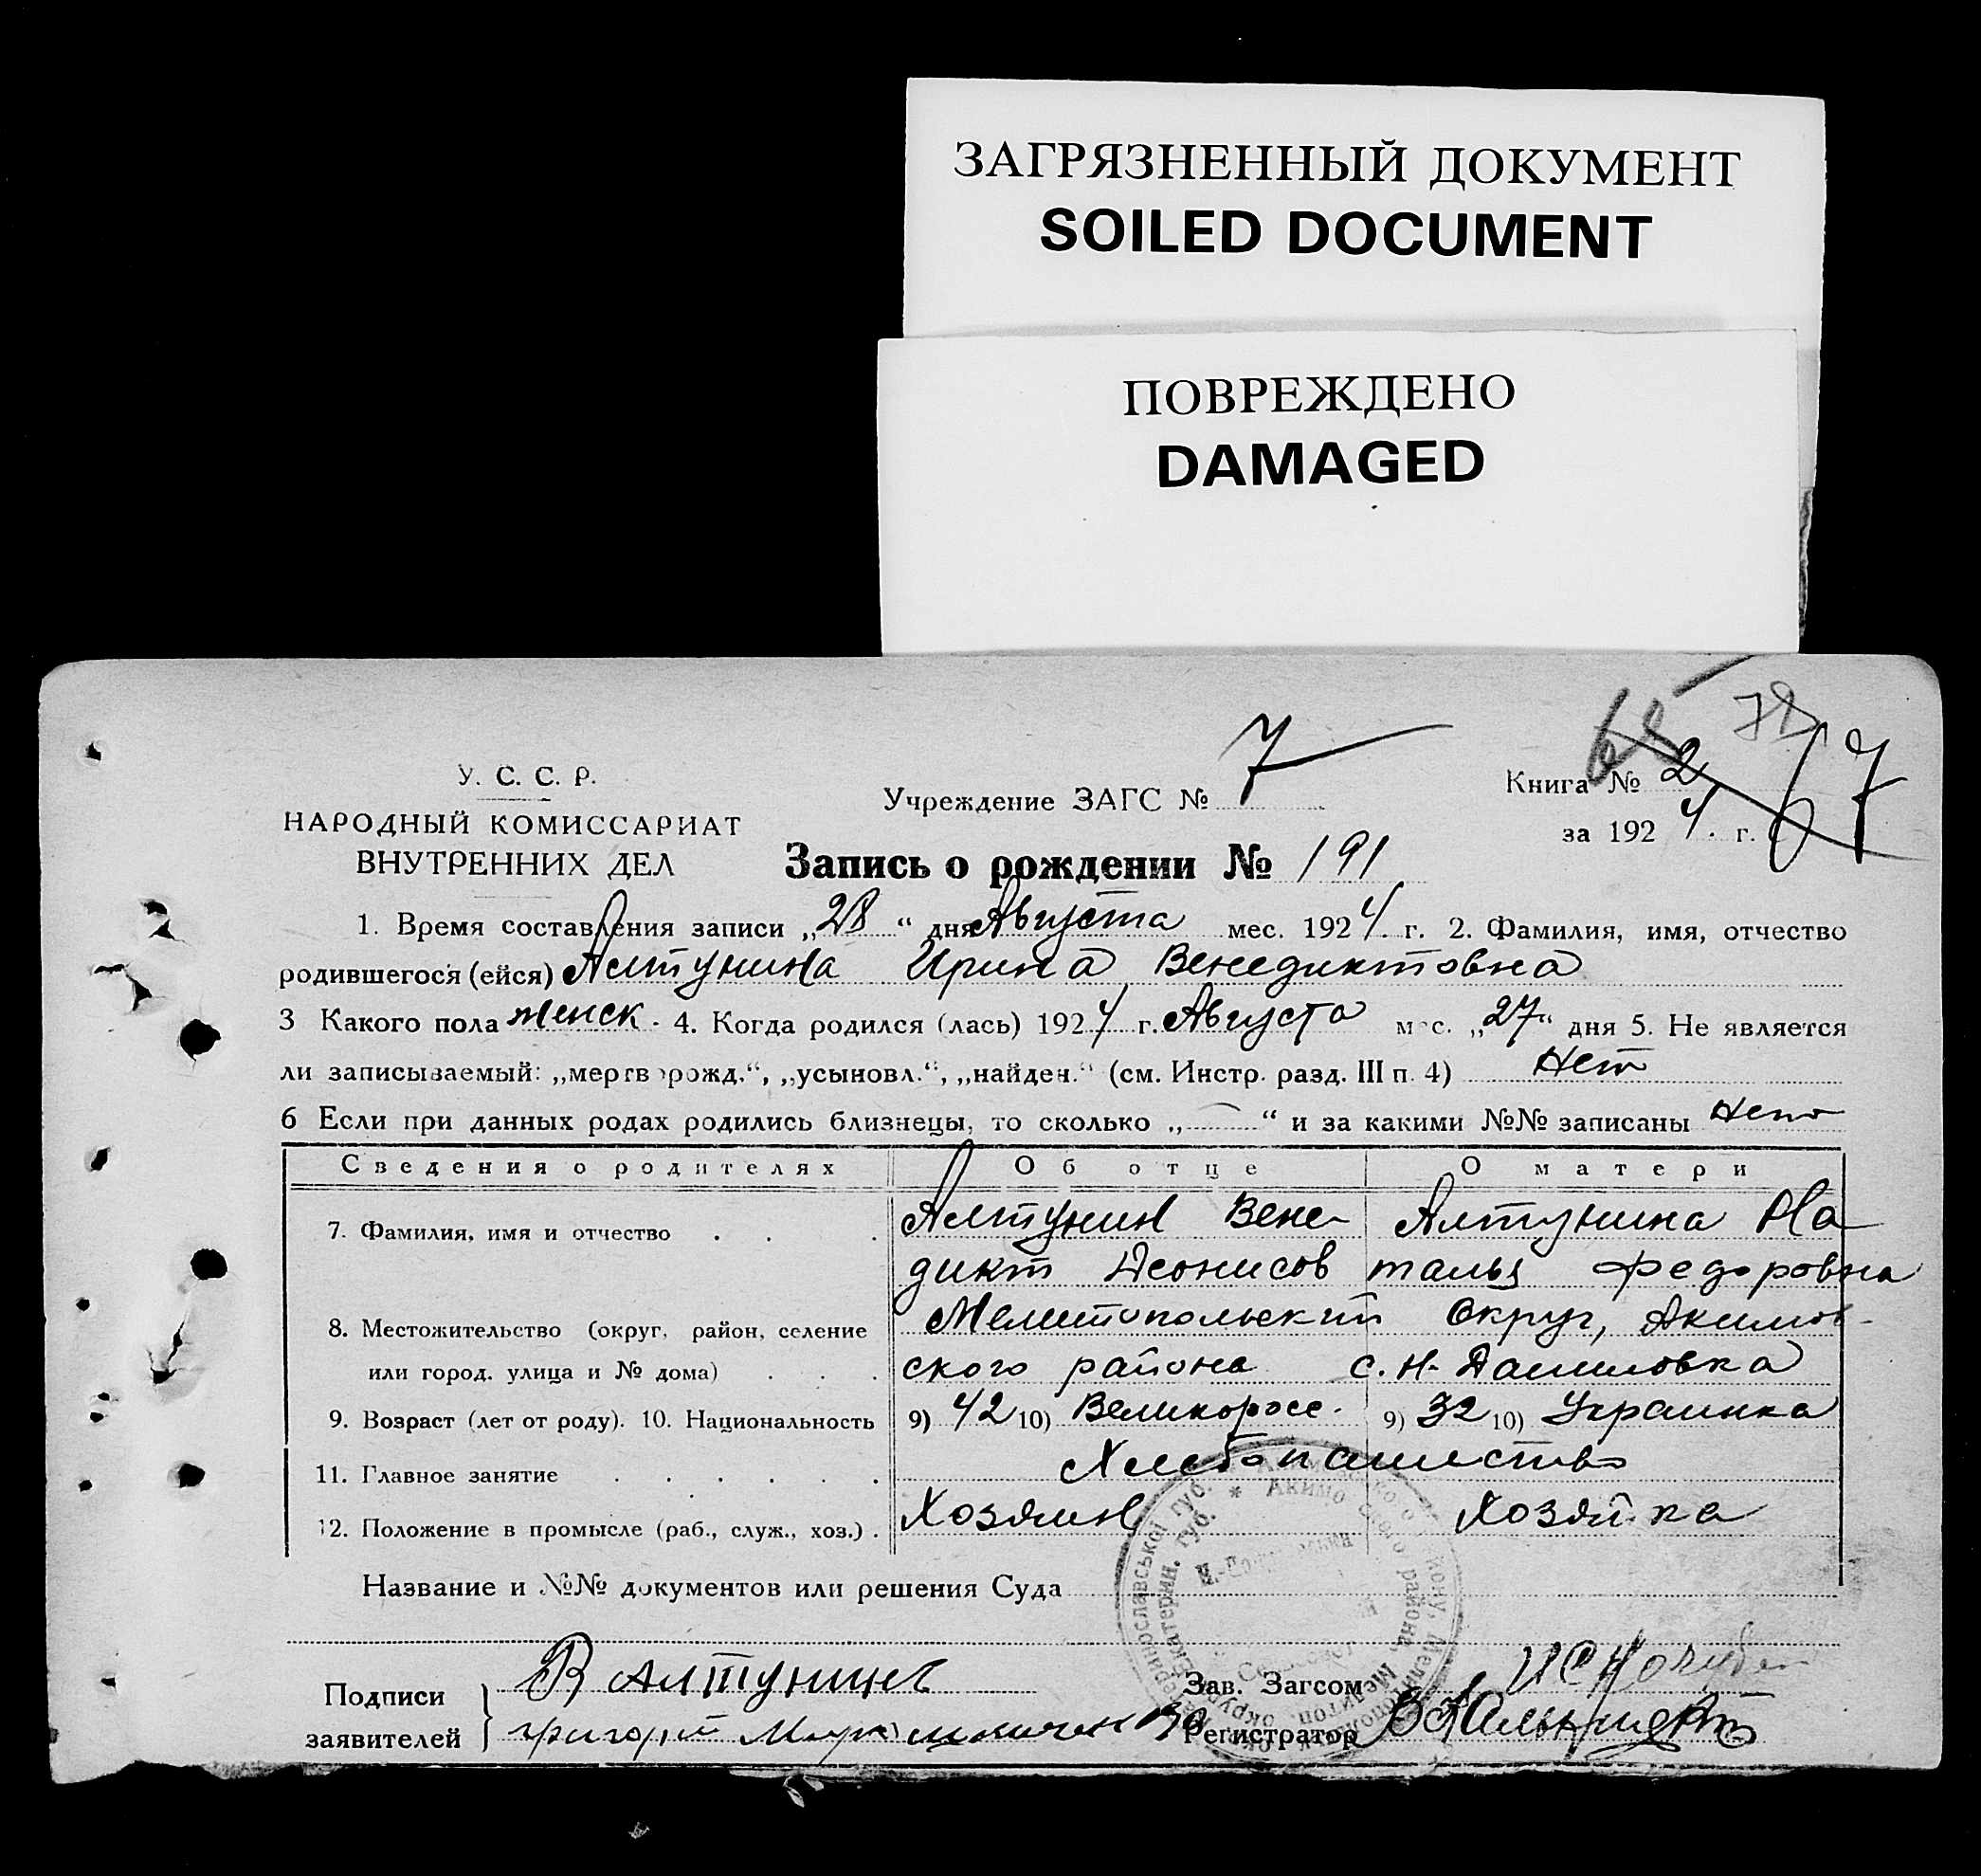 ЗАГРЯЗНЕННЫЙ ДОКУМЕНТ
SOILED DOCUMENT
ПОВРЕЖДЕНО
DAMAGED
У. С. С. Р.
НАРОДНЫЙ КОМИССАРИАТ
ВНУТРЕННИХ ДЕЛ
Учреждение ЗАГС № 7
Книга № 2
за 1924 г.
67
Запись о рождении № 191
1. Время составления записи „28“ дня Августа мес. 1924 г. 2. Фамилия, имя, отчество
родившегося (ейся) Алтунина Ирина Венедиктовна
3 Какого пола женск. 4. Когда родился (лась) 1924 г. Августа мес. „27“ дня 5. Не является
ли записываемый: „мертворожд.“, „усыновл.“, „найден.“ (см. Инстр. разд. III п. 4) Нет
6 Если при данных родах родились близнецы, то сколько „—“ и за какими №№ записаны Нет
Сведения о родителях Об отце О матери
7. Фамилия, имя и отчество . . . Алтунин Вене- Алтунина На
дикт Деонисов талья Федоровна
8. Местожительство (округ, район, селение Мелитопольский Округ, Акимов-
или город, улица и № дома) . . . ского района с. Н-Даниловка
9. Возраст (лет от роду). 10. Национальность 9) 42 10) Великоросс. 9) 32 10) Украинка
11. Главное занятие . . . . . . Хлебопашество
12. Положение в промысле (раб., служ., хоз.) . Хозяин Хозяйка
Название и №№ документов или решения Суда
Подписи
заявителей
В Алтунинъ
Григорий
Зав. Загсом
Регистратор